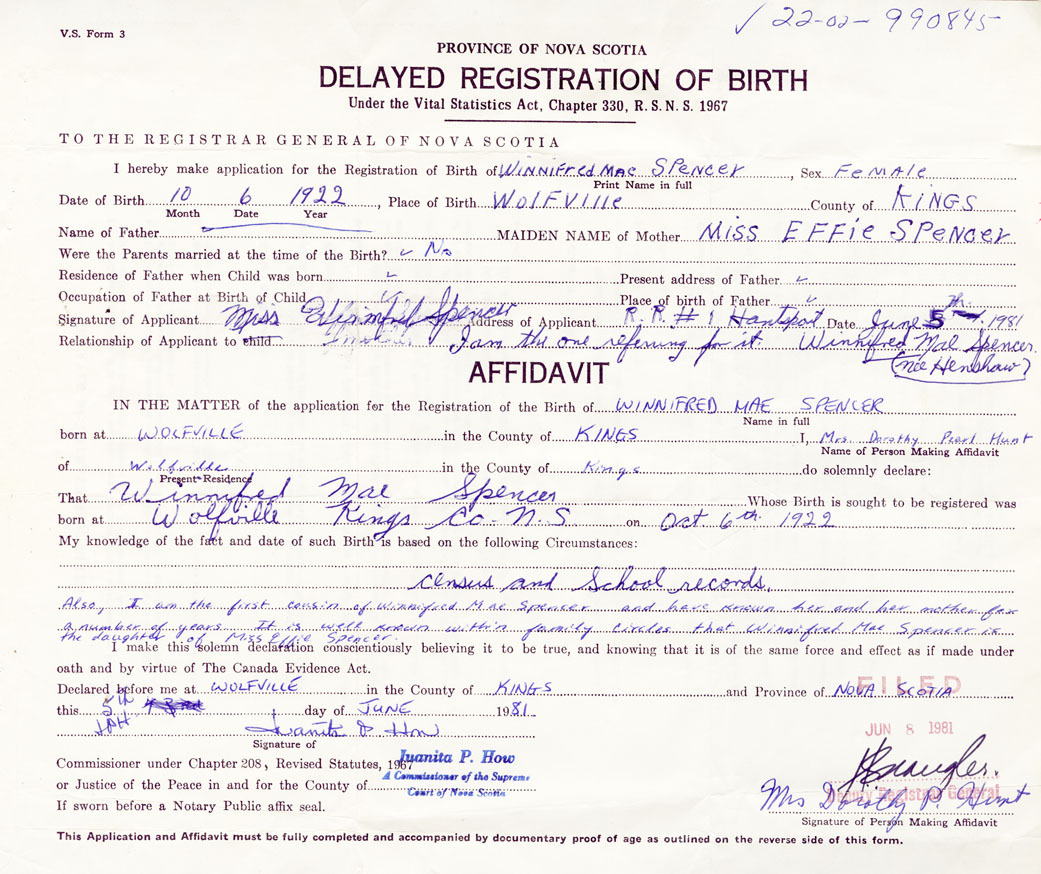 ✓ 22-02-990845
V.S. Form 3
PROVINCE OF NOVA SCOTIA
DELAYED REGISTRATION OF BIRTH
Under the Vital Statistics Act, Chapter 330, R.S.N.S. 1967
TO THE REGISTRAR GENERAL OF NOVA SCOTIA
I hereby make application for the Registration of Birth of WINNIFred MAE SPencer, Sex FeMAle
Print Name in full
Date of Birth 10 6 1922, Place of Birth WolFVille County of KiNGS
Month Date Year
Name of Father MAIDEN NAME of Mother Miss EFFie SPENCEr
Were the Parents married at the time of the Birth? No
Residence of Father when Child was born Present address of Father
Occupation of Father at Birth of Child Place of birth of Father
Signature of Applicant Miss Winnifred Spencer Address of Applicant R.R. # 1 Hantsport Date June 5 th, 1981
Relationship of Applicant to child I am the one referring for it. Winnifred Mae Spencer
(nee Henshaw)
AFFIDAVIT
IN THE MATTER of the application for the Registration of the Birth of WINNIFRED MAE SPENCER
Name in full
born at WOLFVILLE in the County of KINGS I, Mrs. Dorothy Pearl Hunt
Name of Person Making Affidavit
of Wolfville in the County of Kings do solemnly declare:
Present Residence
That Winnifred Mae Spencer Whose Birth is sought to be registered was
born at Wolfville Kings Co. N.S on Oct 6th 1922
My knowledge of the fact and date of such Birth is based on the following Circumstances:
Census and School records.
Also, I am the first cousin of Winnifred Mae Spencer and have known her and her mother for
a number of years. It is well known within family circles that Winnifred Mae Spencer is
the daughter of Miss Effie Spencer.
I make this solemn declaration conscientiously believing it to be true, and knowing that it is of the same force and effect as if made under
oath and by virtue of The Canada Evidence Act.
Declared before me at WOLFVILLE in the County of KINGS and Province of NOVA SCOTIA
FILED
this 5th day of JUNE 1981
JPH
JUN 8 1981
Juanita P How
Signature of
Commissioner under Chapter 208, Revised Statutes, 1967
Juanita P. How
A Commissioner of the Supreme
Court of Nova Scotia
or Justice of the Peace in and for the County of
Deputy Registrar General
If sworn before a Notary Public affix seal.
Mrs Dorothy P. Hunt
Signature of Person Making Affidavit
This Application and Affidavit must be fully completed and accompanied by documentary proof of age as outlined on the reverse side of this form.